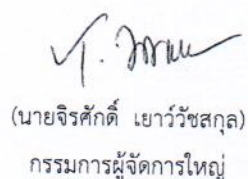 (นายจิรศักดิ์ เยาว์วัชสกุล)
กรรมการผู้จัดการใหญ่